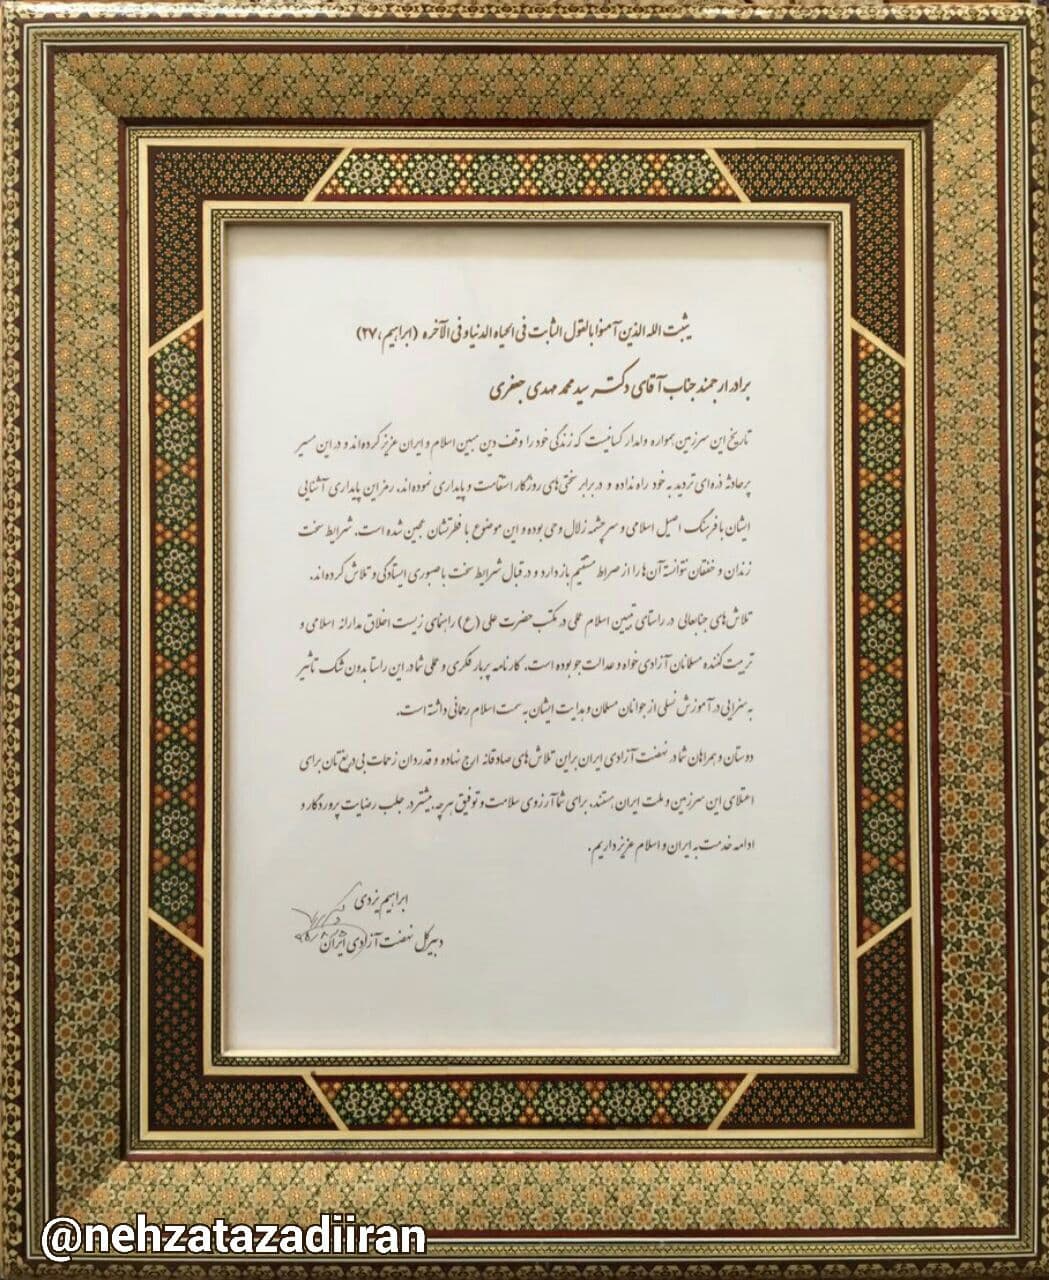 یثبت الله الذین آمنوا بالقول الثابت فی الحیاه الدنیا و فی الآخره (ابراهیم، ۲۷)
برادر ارجمند جناب آقای دکتر سید محمد مهدی جعفری
تاریخ این سرزمین همواره وامدار کسانیست که زندگی خود را وقف دین مبین اسلام و ایران عزیز کرده‌اند و در این مسیر
پرحادثه ذره‌ای تردید به خود راه نداده و در برابر سختی‌های روزگار استقامت و پایداری نموده‌اند. رمز این پایداری آشنایی
ایشان با فرهنگ اصیل اسلامی و سرچشمه زلال وحی بوده و این موضوع با فطرتشان عجین شده است. شرایط سخت
زندان و خفقان نتوانسته آن‌ها را از صراط مستقیم باز دارد و در قبال شرایط سخت با صبوری ایستادگی و تلاش کرده‌اند.
تلاش‌های جنابعالی در راستای تبیین اسلام علی در مکتب حضرت علی (ع) راهنمای زیست اخلاق مدارانه اسلامی و
تربیت کننده مسلمانان آزادی خواه و عدالت جو بوده است. کارنامه پربار فکری و عملی شما در این راستا بدون شک تأثیر
به سزایی در آموزش نسلی از جوانان مسلمان و هدایت ایشان به سمت اسلام رحمانی داشته است.
دوستان و همراهان شما در نهضت آزادی ایران براین تلاش‌های صادقانه ارج نهاده و قدردان زحمات بی‌دریغ‌تان برای
اعتلای این سرزمین و ملت ایران هستند. برای شما آرزوی سلامت و توفیق هرچه بیشتر در جلب رضایت پروردگار و
ادامه خدمت به ایران و اسلام عزیز داریم.
ابراهیم یزدی
دبیرکل نهضت آزادی ایران
@nehzatazadiiran